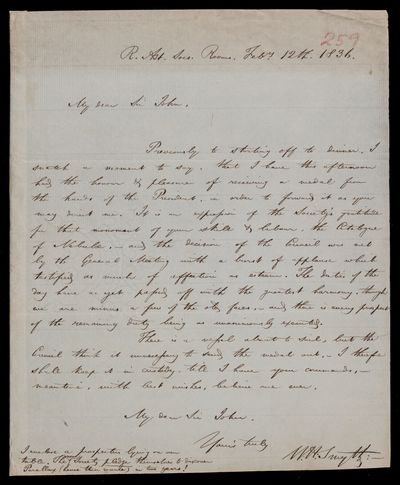 259
R. Ast. Socs. Rooms. Feby. 12th. 1836.
My dear Sir John.
Previously to starting off to dinner, I
snatch a moment to say, that I have this afternoon
had the honour & pleasure of receiving a medal from
the hands of the President, in order to forward it as you
may direct me. It is an expression of the Society's gratitude
for that monument of your skill & labour, the Catalogue
of Nebulæ, – and the decision of the Council was met
by the General Meeting with a burst of applause which
testified as much of affection as esteem. The duties of the
day have as yet passed off with the greatest harmony, though
we are minus a few of the old faces, – and there is every prospect
of the remaining duty being as unanimously executed.
There is a vessel about to sail, but the
Council think it unnecessary to send the medal out, – I therefore
shall keep it in custody till I have your commands, –
meantime, with best wishes, believe me ever,
My dear Sir John.
Yours truly
W. H. Smyth; –
I see also a prospectus lying on our
table. The Society pledge themselves to discover
Parallax (some three) in two years!